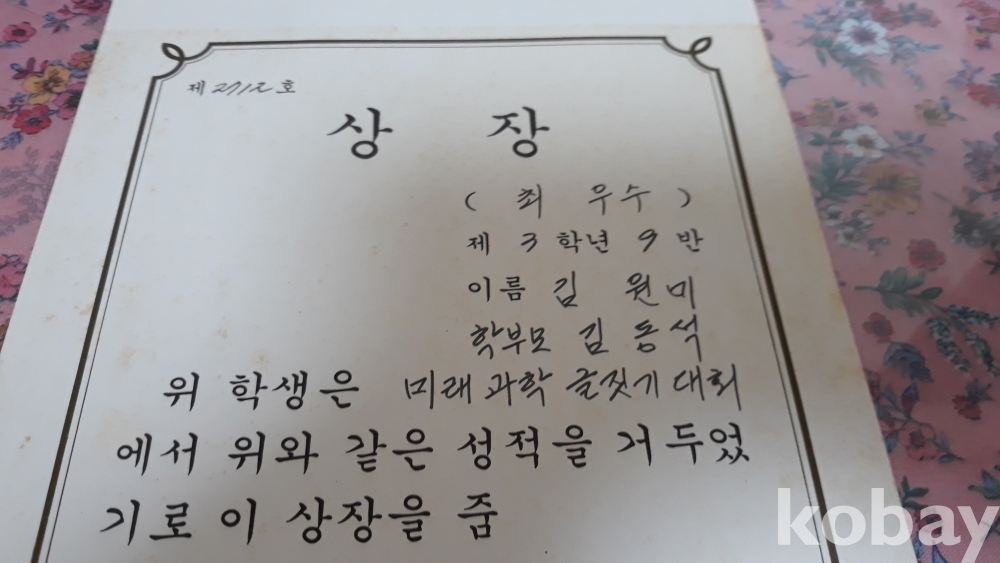 제 2712 호
상 장
( 최 우수 )
제 3 학년 9 반
이름 김 원미
학부모 김 동석
위 학생은 미래 과학 글짓기 대회
에서 위와 같은 성적을 거두었
기로 이 상장을 줌
kobay